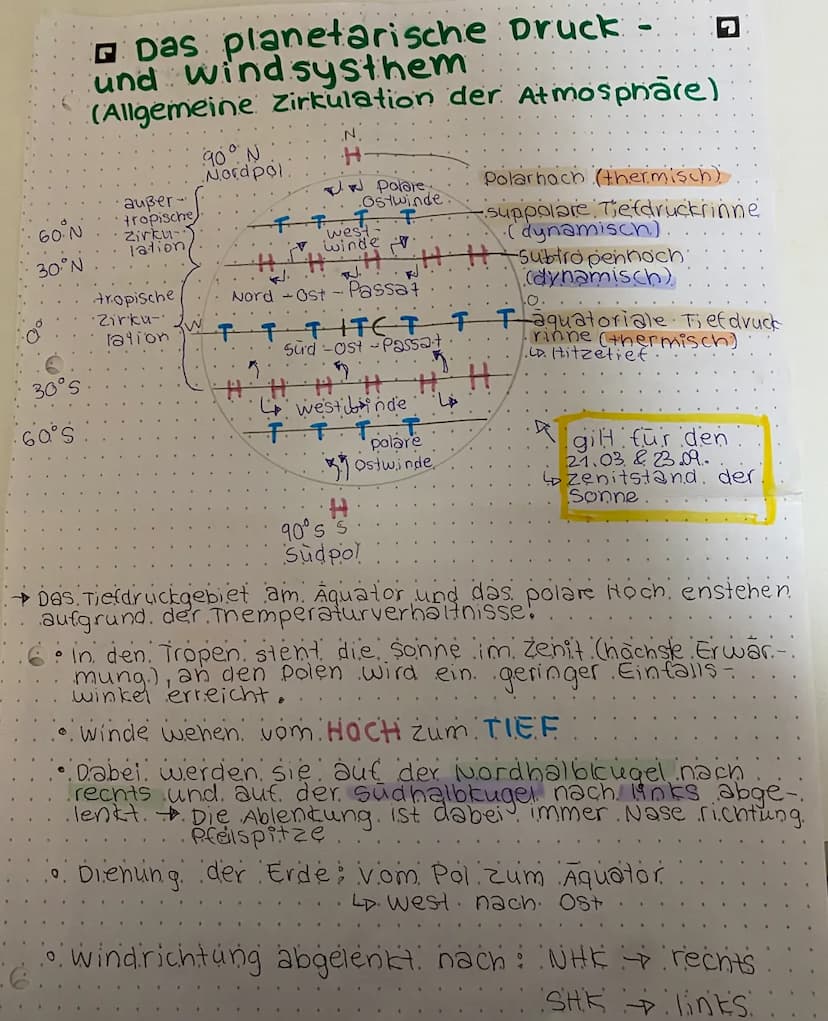 Das planetarische Druck -
und windsysthem
(Allgemeine Zirkulation der Atmosphäre)
N
H
90° N
Nordpol
Polarhoch (thermisch)
polare
Ostwinde
außer-
tropische
zirku-
lation
60°N
T T T T
suppolare Tiefdruckrinne
(dynamisch)
west-
winde
30°N
H H H H H
subtropenhoch
(dynamisch)
Nord-Ost-Passat
tropische
zirku-
lation
0°
W
T T T ITC T T T
O
äquatoriale Tiefdruck
rinne (thermisch)
↳ Hitzetief
Süd-Ost-Passat
30°S
H H H H H H
↳ westwinde ↳
60°S
T T T T
polare
Ostwinde
gilt für den
21.03. & 23.09.
↳ zenitstand der
Sonne
H
90° S S
Südpol
→ Das Tiefdruckgebiet am Äquator und das polare Hoch enstehen
aufgrund der Themperaturverhältnisse!
• In den Tropen steht die Sonne im Zenit (höchste Erwär-
mung), an den Polen wird ein geringer Einfalls-
winkel erreicht.
• Winde wehen vom HOCH zum TIEF
• Dabei werden sie auf der Nordhalbkugel nach
rechts und auf der südhalbkugel nach links abge-
lenkt → Die Ablenkung ist dabei immer Nase richtung
Pfeilspitze
• Drehung der Erde: vom Pol zum Äquator
↳ West nach Ost
• Windrichtung abgelenkt nach: NHK → rechts
SHK → links